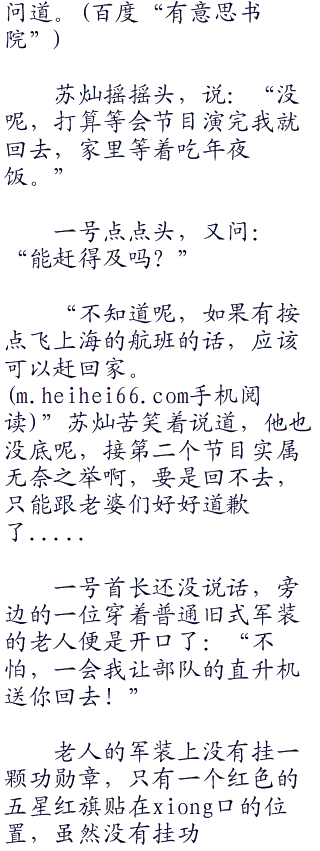 问道。(百度“有意思书
院”)
苏灿摇摇头，说：“没
呢，打算等会节目演完我就
回去，家里等着吃年夜
饭。”
一号点点头，又问：
“能赶得及吗？”
“不知道呢，如果有按
点飞上海的航班的话，应该
可以赶回家。
(m.heihei66.com手机阅
读)”苏灿苦笑着说道，他也
没底呢，接第二个节目实属
无奈之举啊，要是回不去，
只能跟老婆们好好道歉
了.....
一号首长还没说话，旁
边的一位穿着普通旧式军装
的老人便是开口了：“不
怕，一会我让部队的直升机
送你回去！”
老人的军装上没有挂一
颗功勋章，只有一个红色的
五星红旗贴在xiong口的位
置，虽然没有挂功